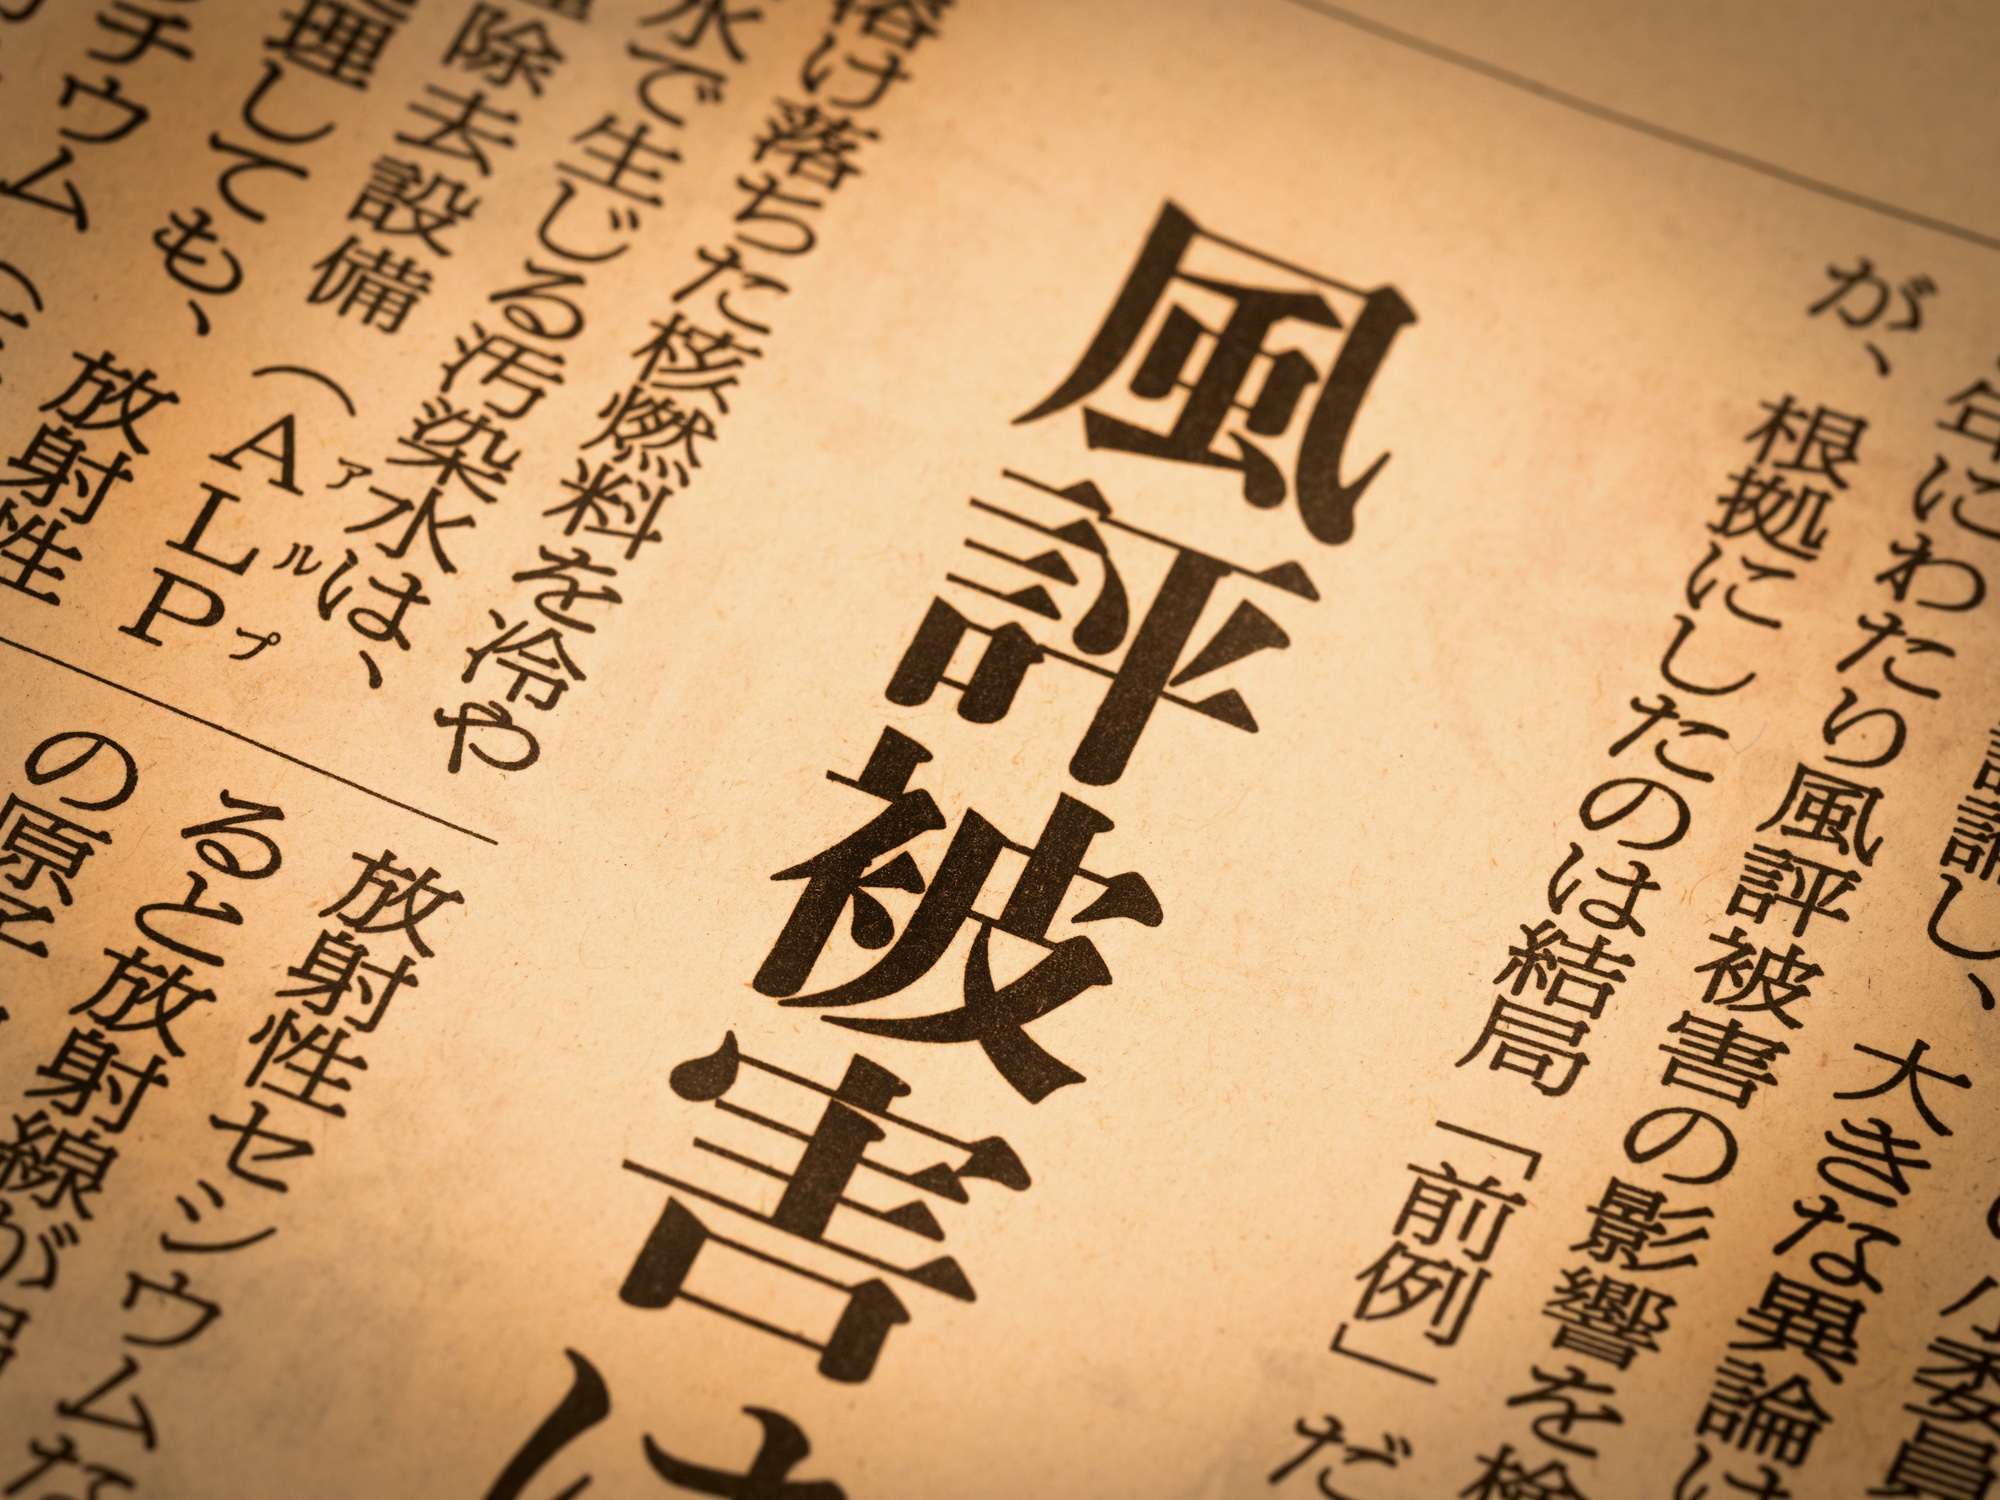 小委員
論し、大きな異論は
年にわたり風評被害の影響を検
が、根拠にしたのは結局「前例」だ
風評被害は
溶け落ちた核燃料を冷や
水で生じる汚染水は、
除去設備（ALP
アルプ
理しても、放射性
チウム（
放射性セシウムな
ると放射線が
の原子